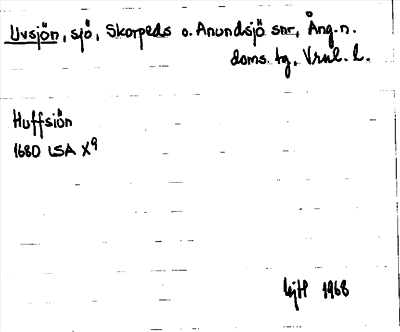 Uvsjön, sjö, Skorpeds o. Anundsjö snr, Ång.n.
doms. tg, Vrnl. l.
Huffsiön
1680 LSA X9
1968